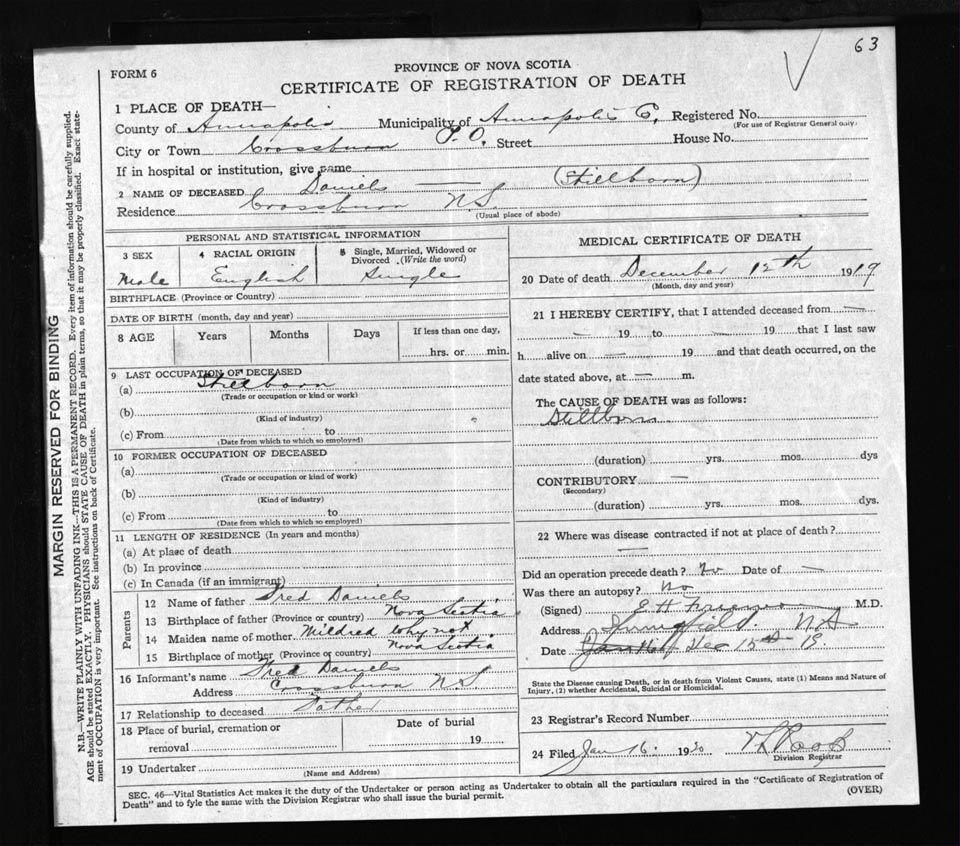 63
FORM 6
PROVINCE OF NOVA SCOTIA
CERTIFICATE OF REGISTRATION OF DEATH
1 PLACE OF DEATH—
County of Annapolis Municipality of Annapolis Co, Registered No.
(For use of Registrar General only)
City or Town Crossburn P.O. Street House No.
If in hospital or institution, give name
2 NAME OF DECEASED Daniels — (Stillborn)
Residence Crossburn N.S.
(Usual place of abode)
PERSONAL AND STATISTICAL INFORMATION
3 SEX Male
4 RACIAL ORIGIN English
5 Single, Married, Widowed or Divorced. (Write the word) Single
BIRTHPLACE (Province or Country)
DATE OF BIRTH (month, day and year)
8 AGE Years Months Days If less than one day, hrs. or min.
9 LAST OCCUPATION OF DECEASED
(a) Stillborn
(Trade or occupation or kind or work)
(b)
(Kind of industry)
(c) From to
(Date from which to which so employed)
10 FORMER OCCUPATION OF DECEASED
(a)
(Trade or occupation or kind of work)
(b)
(Kind of industry)
(c) From to
(Date from which to which so employed)
11 LENGTH OF RESIDENCE (In years and months)
(a) At place of death
(b) In province
(c) In Canada (if an immigrant)
Parents
12 Name of father Fred Daniels
13 Birthplace of father (Province or country) Nova Scotia
14 Maiden name of mother Mildred Whynot
15 Birthplace of mother (Province or country) Nova Scotia
16 Informant's name Fred Daniels
Address Crossburn N.S
17 Relationship to deceased Father
18 Place of burial, cremation or removal
Date of burial 19
19 Undertaker
(Name and Address)
MEDICAL CERTIFICATE OF DEATH
20 Date of death December 12th 1919
(Month, day and year)
21 I HEREBY CERTIFY, that I attended deceased from —
— 19 to — 19 that I last saw
h alive on — 19 and that death occurred, on the
date stated above, at — m.
The CAUSE OF DEATH was as follows:
Stillborn
(duration) yrs. mos. dys
CONTRIBUTORY —
(Secondary)
(duration) yrs. mos. dys.
22 Where was disease contracted if not at place of death?
—
Did an operation precede death? No Date of —
Was there an autopsy? No
(Signed) E H M.D.
Address Springfield N.S
Date Dec 15th 19
State the Disease causing Death, or in death from Violent Causes, state (1) Means and Nature of
Injury, (2) whether Accidental, Suicidal or Homicidal.
23 Registrar's Record Number
24 Filed Jan 16. 1920
Division Registrar
SEC. 46—Vital Statistics Act makes it the duty of the Undertaker or person acting as Undertaker to obtain all the particulars required in the "Certificate of Registration of
Death" and to fyle the same with the Division Registrar who shall issue the burial permit.
(OVER)
MARGIN RESERVED FOR BINDING
N.B.—WRITE PLAINLY WITH UNFADING INK—THIS IS A PERMANENT RECORD. Every item of information should be carefully supplied.
AGE should be stated EXACTLY. PHYSICIANS should STATE CAUSE OF DEATH in plain terms, so that it may be properly classified. Exact state-
ment of OCCUPATION is very important. See instructions on back of Certificate.